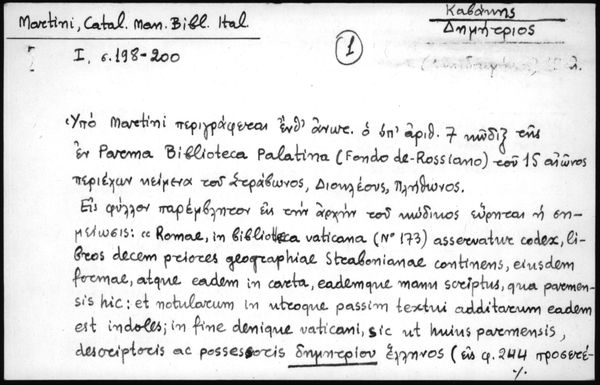 Martini, Catal. Man. Bibl. Ital
Καβάκης
Δημήτριος
I, σ. 198-200
1
Ὑπό Martini περιγράφεται ἔνθ' ἄνωτ. ὁ ὑπ' ἀριθ. 7 κῶδιξ τῆς
ἐν Parma Biblioteca Palatina (Fondo de-Rossiano) τοῦ 15 αἰῶνος
περιέχων κείμενα τοῦ Στράβωνος, Διοκλέους, Πλήθωνος.
Εἰς φύλλον παρέμβλητον εἰς τήν ἀρχήν τοῦ κώδικος εὕρηται ἡ ση-
μείωσις: « Romae, in biblioteca vaticana (Nº 173) asservatur codex, li-
bros decem priores geographiae Strabonianae continens, eiusdem
formae, atque eadem in carta, eademque manu scriptus, qua parmen-
sis hic: et notularum in utroque passim textui additarum eadem
est indoles; in fine denique vaticani, sic ut huius parmensis,
descriptoris ac possessoris δημητρίου ἕλληνος (εἰς φ. 244 προσετέ-
%